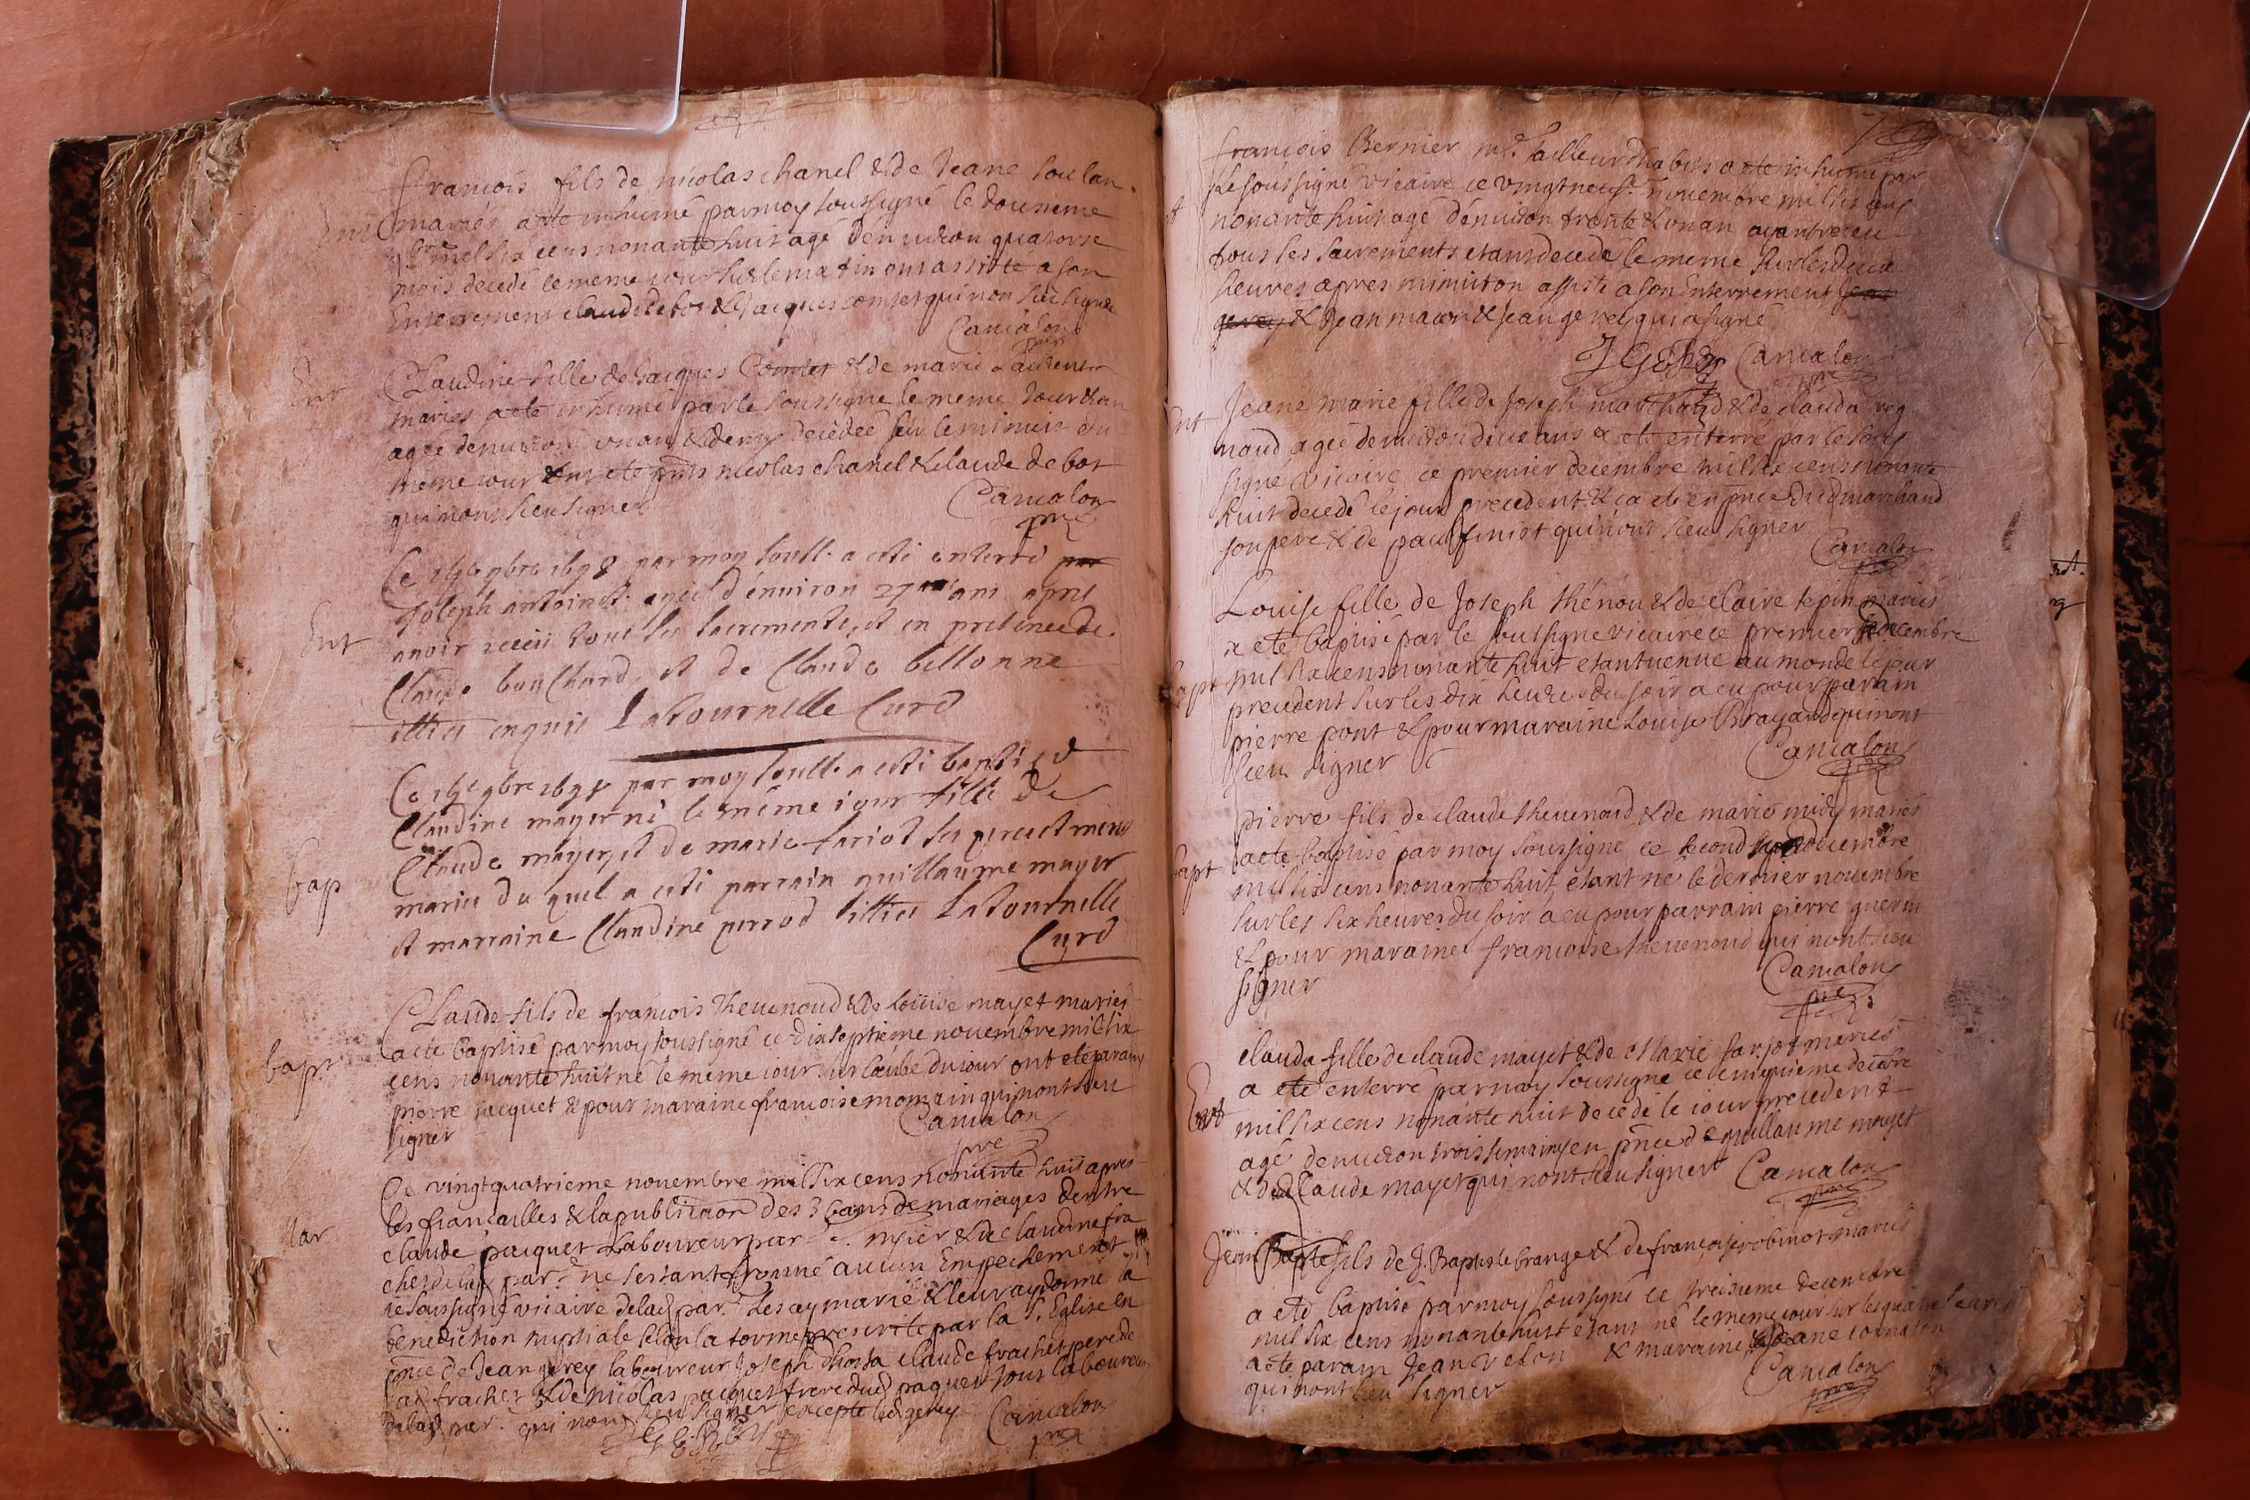 francois fils de nicolas chanel & de Jeane
Ent mariés a ete inhumé par moy soussigné le
mil six cens nonante huit agé d'environ quatorse
mois decedé le meme jour sur le matin ont assisté a son
Enterrement claude debot & Jacques comtet qui n'ont sceu signer
Camalon
pre
Ent Claudine fille de Jacques Comtet & de marie
mariés a ete inhumé par le soussigné le meme jour
agée d'environ un an & demy decedée sur le minuit du
meme jour ont ete pnts nicolas chanel & Claude de bot
qui n'ont sceu signer Camalon
pre
Ce 9bre 1698 par moy souss. a esté enterré
Joseph antoinet agé d'environ 27 ans apres
Ent avoir receu tous les sacrements, et en presence de
Claude bouchard, et de Claude billonne
illite enquis LaTournelle Curé
Ce 9bre 1698 par moy souss. a esté baptisé
Claudine mayer né le même jour fille de
bap Claude mayer, et de marie tariot ses pere et mere
mariés du quel a esté parrain guillaume mayer
et marraine Claudine perrod illites LaTournelle
Curé
Claude fils de francois Thevenoud & de Loüise mayet mariés
bapt a ete baptisé par moy soussigné ce dixseptieme novembre mil six
cens nonante huit né le meme jour sur l'aube du jour ont ete parain
pierre jacquet & pour maraine francoise momain qui n'ont sceu
signer Camalon
pre
Ce vingt quatrieme novembre mil six cens nonante huit apres
les fiancailles & la publication des 3 bans de mariages d'entre
Mar claude paquet Laboureur & de claudine fra
chet de lad par. ne s'estant trouvé aucun Empechement
je soussigné vicaire de lad par. les ay marié & leur ay donné la
benediction nuptiale selon la forme prescrite par la S. Eglise en
pnce de Jean gerey laboureur Joseph claude frachet pere de
lad frachet & de nicolas paquet frere dud paquet tous laboureurs
de lad par. qui n'ont sceu signer excepté led gerey Camalon
J GEREY pre
francois Bernier me tailleur d'habits a ete inhumé par
le soussigné vicaire ce vingt neuf novembre mil six cens
nonante huit agé d'environ trente & un an ayant receu
tous les sacrements etant decedé le meme sur les deux
heures apres minuit on assisté a son Enterrement
& Jean maior & Jean gerey qui a signé
J Gerey Camalon
pre
Ent Jeane marie fille de Joseph marchand & de clauda reg
naud agée d'environ deux ans a ete enterré par le sous
signé vicaire ce premier decembre mil six cens nonante
huit decedé le jour precedent & ca ete en pnce dud marchand
son pere & de paul finist qui n'ont sceu signer
Camalon
pre
Louise fille de Joseph thénou & de claire tepin mariés
a eté baptisé par le soussigné vicaire ce premier decembre
bapt mil six cens nonante huit etant venue au monde le jour
precedent sur les dix heures du soir a eu pour parain
pierre pont & pour maraine Louise Brayand qui n'ont
sceu signer Camalon
pre
pierre fils de claude thevenoud & de marie midy mariés
bapt a ete baptisé par moy soussigné ce second decembre
mil six cens nonante huit etant né le dernier novembre
sur les six heures du soir a eu pour parrain pierre guerin
& pour maraine francoise thevenoud qui n'ont sceu
signer Camalon
pre
clauda fille de claude mayet & de Marie tarjot mariés
Ent a eté enterré par moy soussigné ce cinquieme decebre
mil six cens nonante huit decedé le jour precedent
agé d'environ trois semaines en pnce de guillaume mayet
& de Claude mayet qui n'ont sceu signer Camalon
pre
Jean Bapte fils de J. Baptiste Grange & de francoise robinot mariés
a eté baptisé par moy soussigné ce treisieme decembre
mil six cens nonante huit etant né le meme jour sur les quatre heures
a ete parain Jean velon & maraine Jeane
qui n'ont sceu signer Camalon
pre